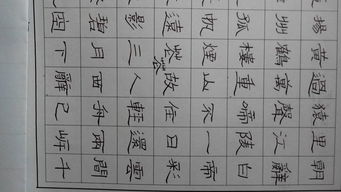 朝辭白帝彩雲間千
里江陵一日還兩岸
猿聲啼不住輕舟已
過萬重山故人西辭
黃鶴樓煙花三月下
揚州孤帆遠影碧空